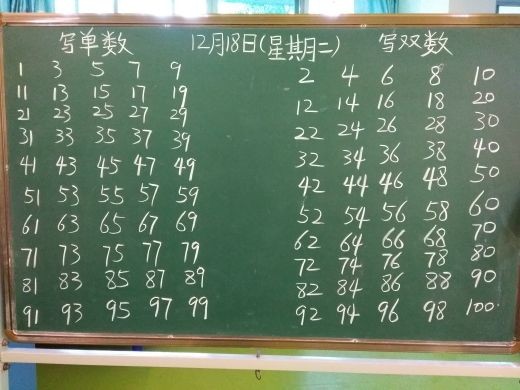 写单数 12月18日(星期二) 写双数
1 3 5 7 9 2 4 6 8 10
11 13 15 17 19 12 14 16 18 20
21 23 25 27 29 22 24 26 28 30
31 33 35 37 39 32 34 36 38 40
41 43 45 47 49 42 44 46 48 50
51 53 55 57 59 52 54 56 58 60
61 63 65 67 69 62 64 66 68 70
71 73 75 77 79 72 74 76 78 80
81 83 85 87 89 82 84 86 88 90
91 93 95 97 99 92 94 96 98 100